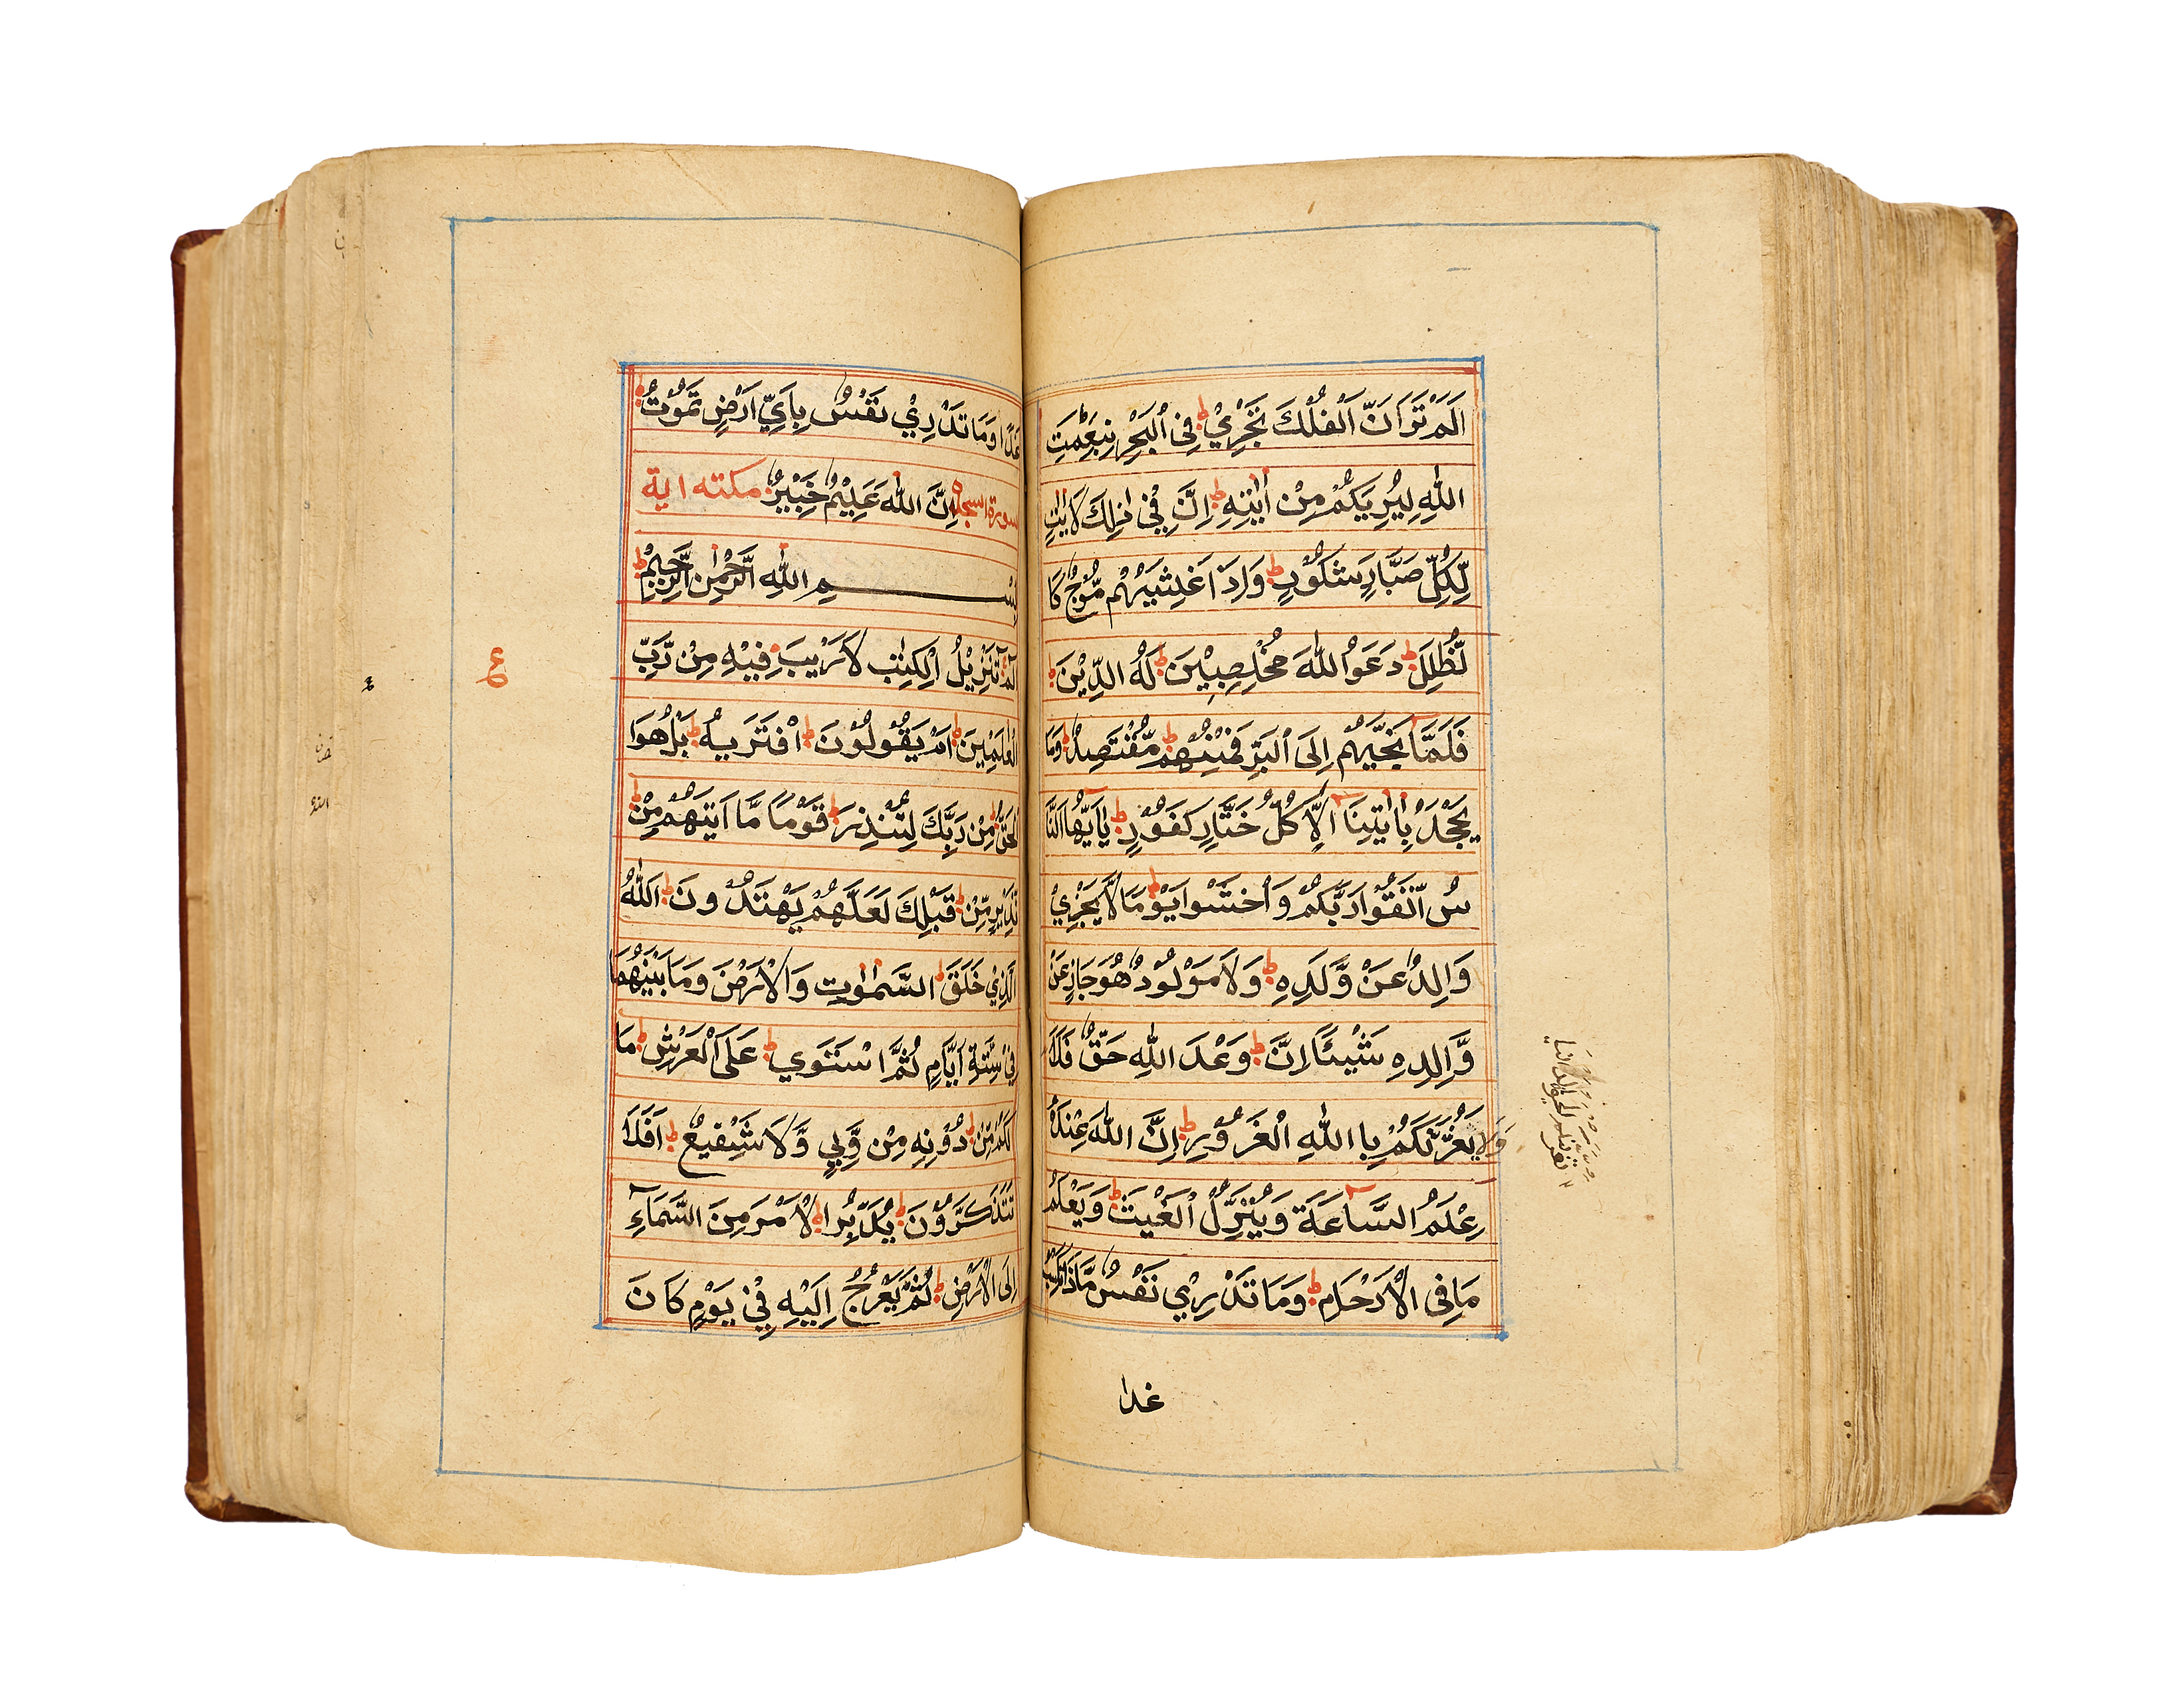 اَلَمْ تَرَ اَنَّ الْفُلْكَ تَجْرِيْ فِي الْبَحْرِ بِنِعْمَتِ
اللّٰهِ لِيُرِيَكُمْ مِنْ اٰيٰتِهٖ اِنَّ فِيْ ذٰلِكَ لَاٰيٰتٍ
لِّكُلِّ صَبَّارٍ شَكُوْرٍ وَاِذَا غَشِيَهُمْ مَّوْجٌ كَا
لظُّلَلِ دَعَوُا اللّٰهَ مُخْلِصِيْنَ لَهُ الدِّيْنَ
فَلَمَّا نَجّٰىهُمْ اِلَى الْبَرِّ فَمِنْهُمْ مُّقْتَصِدٌ وَمَا
يَجْحَدُ بِاٰيٰتِنَا اِلَّا كُلُّ خَتَّارٍ كَفُوْرٍ يٰاَيُّهَا النَّا
سُ اتَّقُوْا رَبَّكُمْ وَاخْشَوْا يَوْمًا لَّا يَجْزِيْ
وَالِدٌ عَنْ وَّلَدِهٖ وَلَا مَوْلُوْدٌ هُوَ جَازٍ عَنْ
وَّالِدِهٖ شَيْئًا اِنَّ وَعْدَ اللّٰهِ حَقٌّ فَلَا
وَلَا يَغُرَّنَّكُمْ بِا اللّٰهِ الْغَرُوْرِ اِنَّ اللّٰهَ عِنْدَهٗ
عِلْمُ السَّاعَةِ وَيُنَزِّلُ الْغَيْثَ وَيَعْلَمُ
مَا فِي الْاَرْحَامِ وَمَا تَدْرِيْ نَفْسٌ مَّاذَا تَكْسِبُ
غدا
غَدًا وَمَا تَدْرِيْ نَفْسٌ بِاَيِّ اَرْضٍ تَمُوْتُ
سورة السجدة اِنَّ اللّٰهَ عَلِيْمٌ خَبِيْرٌ مكته اية
بِسْمِ اللّٰهِ الرَّحْمٰنِ الرَّحِيْمِ
الٓمّٓ تَنْزِيْلُ الْكِتٰبِ لَا رَيْبَ فِيْهِ مِنْ رَّبِّ
الْعٰلَمِيْنَ اَمْ يَقُوْلُوْنَ افْتَرٰىهُ بَلْ هُوَا
لْحَقُّ مِنْ رَبِّكَ لِتُنْذِرَ قَوْمًا مَّا اَتٰىهُمْ مِنْ
نَذِيْرٍ مِّنْ قَبْلِكَ لَعَلَّهُمْ يَهْتَدُوْنَ اَللّٰهُ
الَّذِيْ خَلَقَ السَّمٰوٰتِ وَالْاَرْضَ وَمَا بَيْنَهُمَا
فِيْ سِتَّةِ اَيَّامٍ ثُمَّ اسْتَوٰي عَلَى الْعَرْشِ مَا
لَكُمْ مِّنْ دُوْنِهٖ مِنْ وَّلِيٍّ وَّلَا شَفِيْعٍ اَفَلَا
تَتَذَكَّرُوْنَ يُدَبِّرُ الْاَمْرَ مِنَ السَّمَاءِ
اِلَى الْاَرْضِ ثُمَّ يَعْرُجُ اِلَيْهِ فِيْ يَوْمٍ كَانَ
ع